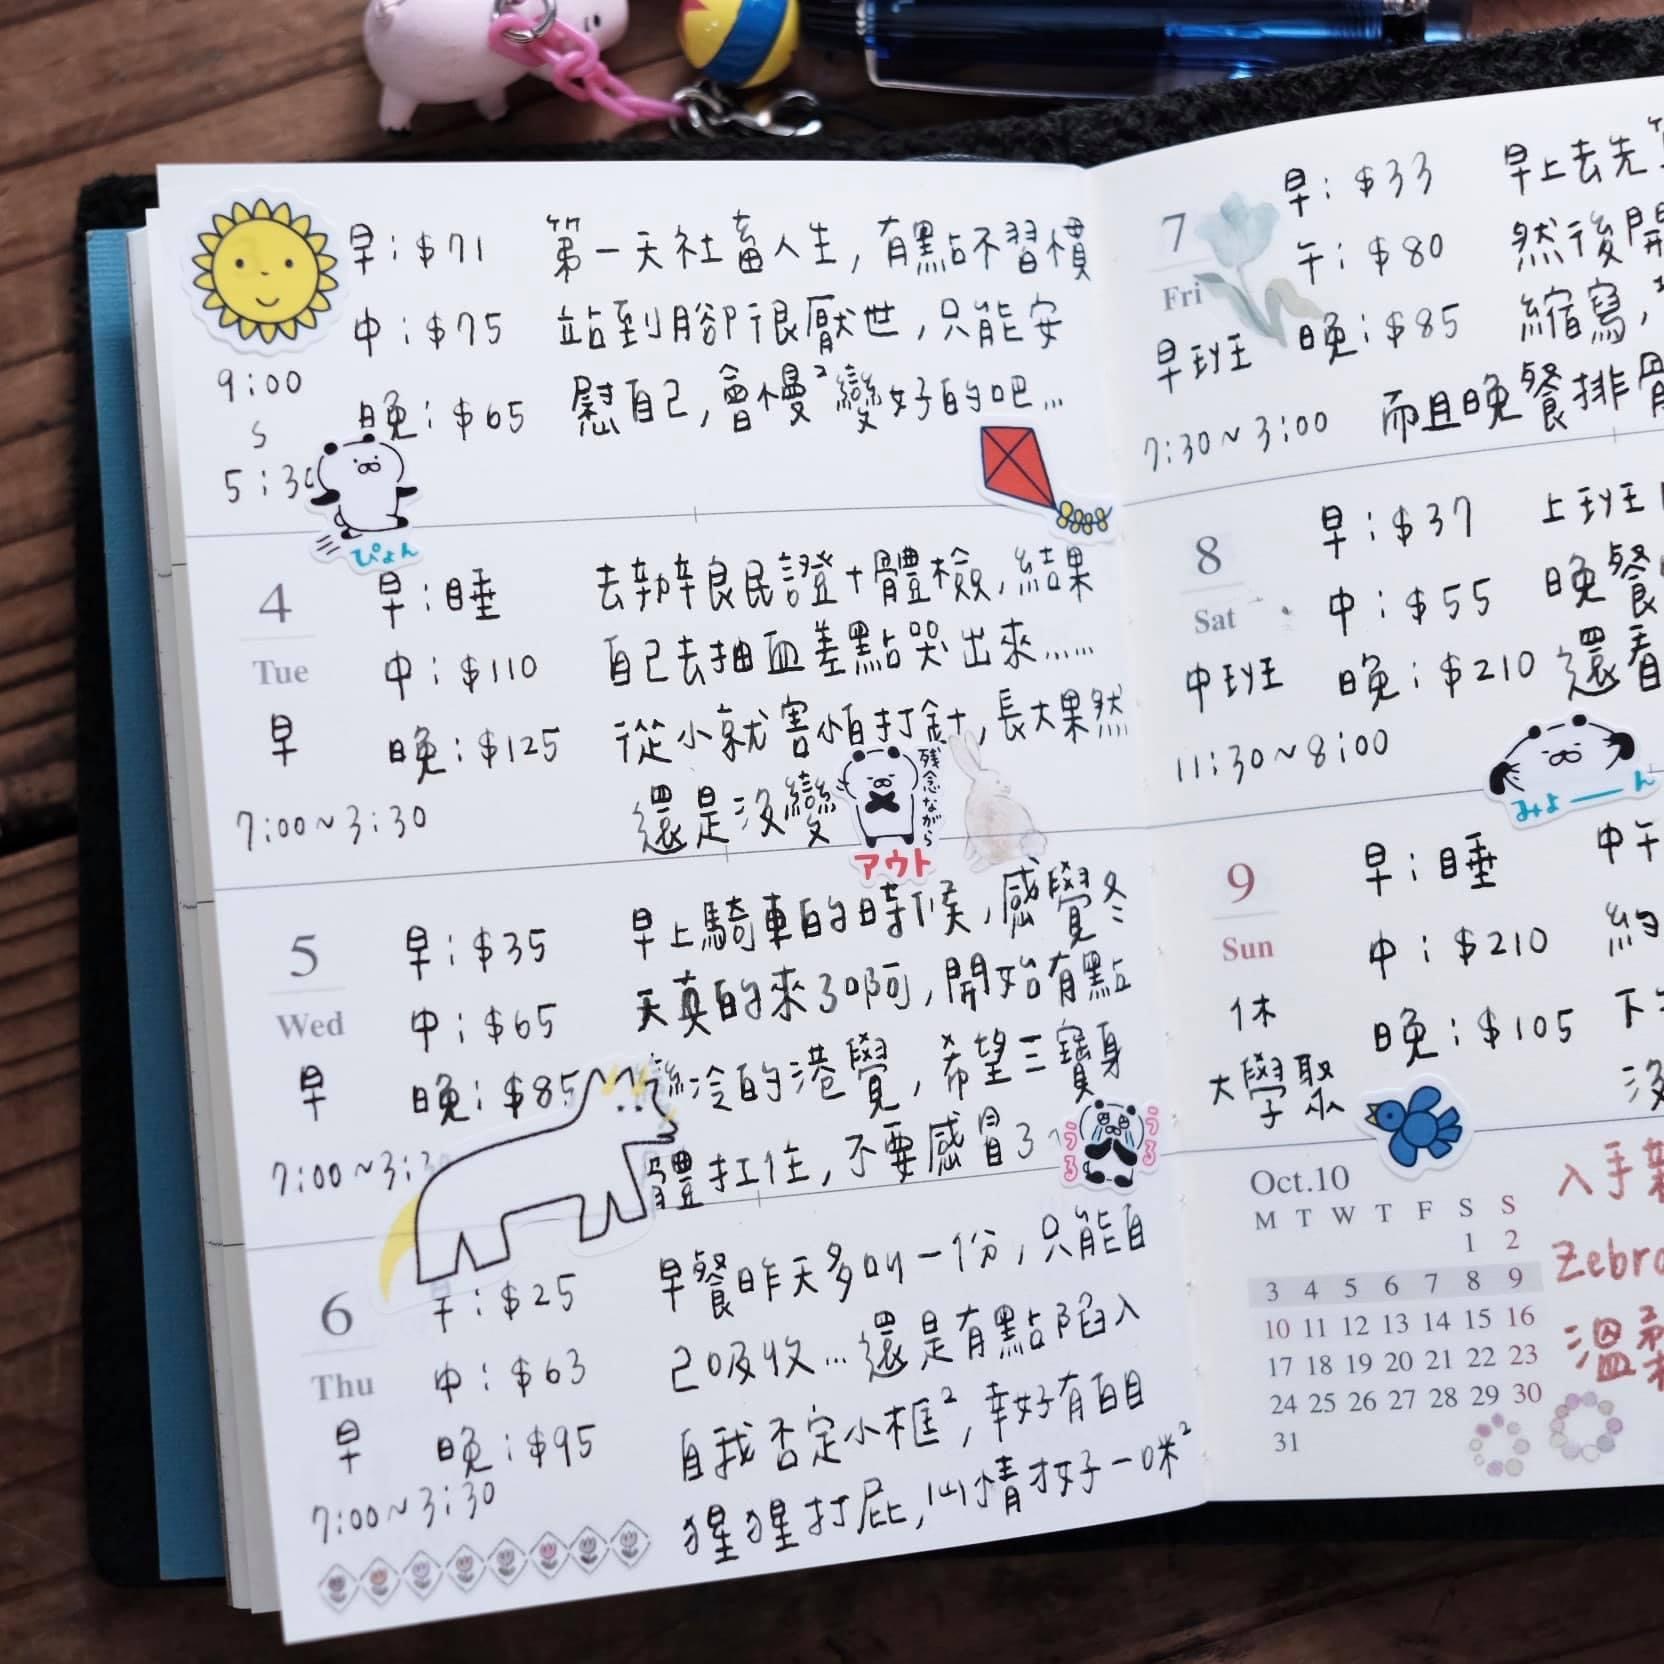 早：$71
中：$75
晚：$65
9:00
5:30
第一天社畜人生，有點不習慣
站到腳很厭世，只能安
慰自己，會慢²變好的吧...
ぴょん
4
Tue
早
7:00~3:30
早：睡
中：$110
晚：$125
去辦良民證+體檢，結果
自己去抽血差點哭出來......
從小就害怕打針，長大果然
還是沒變
残念ながら
アウト
5
Wed
早
7:00~3:
早：$35
中：$65
晚：$85
早上騎車的時候，感覺冬
天真的來了啊，開始有點
冷的港覺，希望三寶身
體扛住，不要感冒了
うる
うる
6
Thu
早
7:00~3:30
：$25
中：$63
晚：$95
早餐昨天多叫一份，只能自
己吸收...還是有點陷入
自我否定小框²，幸好有白目
猩猩打屁，心情才好一咪²
7
Fri
早班
7:30~3:00
早：$33
午：$80
晚：$85
早上去先
然後開
縮寫，
而且晚餐排骨
8
Sat
中班
11:30~8:00
早：$37
中：$55
晚：$210
上班
晚餐
還看
みよーーん
9
Sun
休
大學聚
早：睡
中：$210
晚：$105
中午
約
下
沒
Oct.10
M T W T F S S
1 2
3 4 5 6 7 8 9
10 11 12 13 14 15 16
17 18 19 20 21 22 23
24 25 26 27 28 29 30
31
入手新
Zebra
溫柔